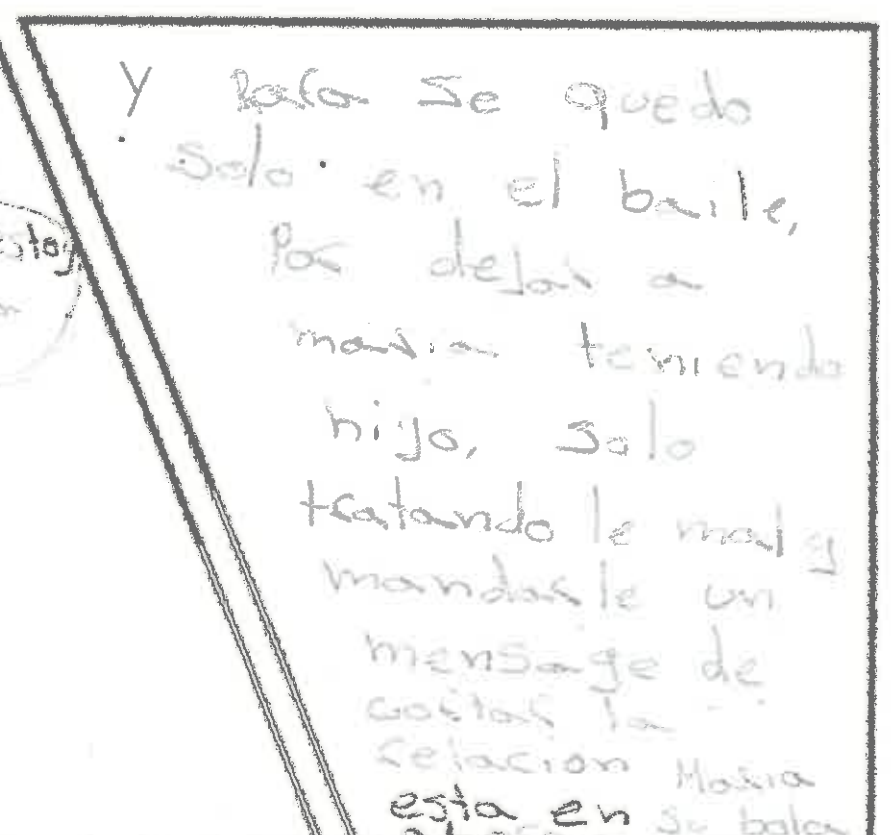 Y Rafa se quedo
solo en el baile,
Por dejar a
maria teniendo
hijo, solo
tratando le mal y
mandarle un
mensage de
cortar la
relacion Maria
esta en su